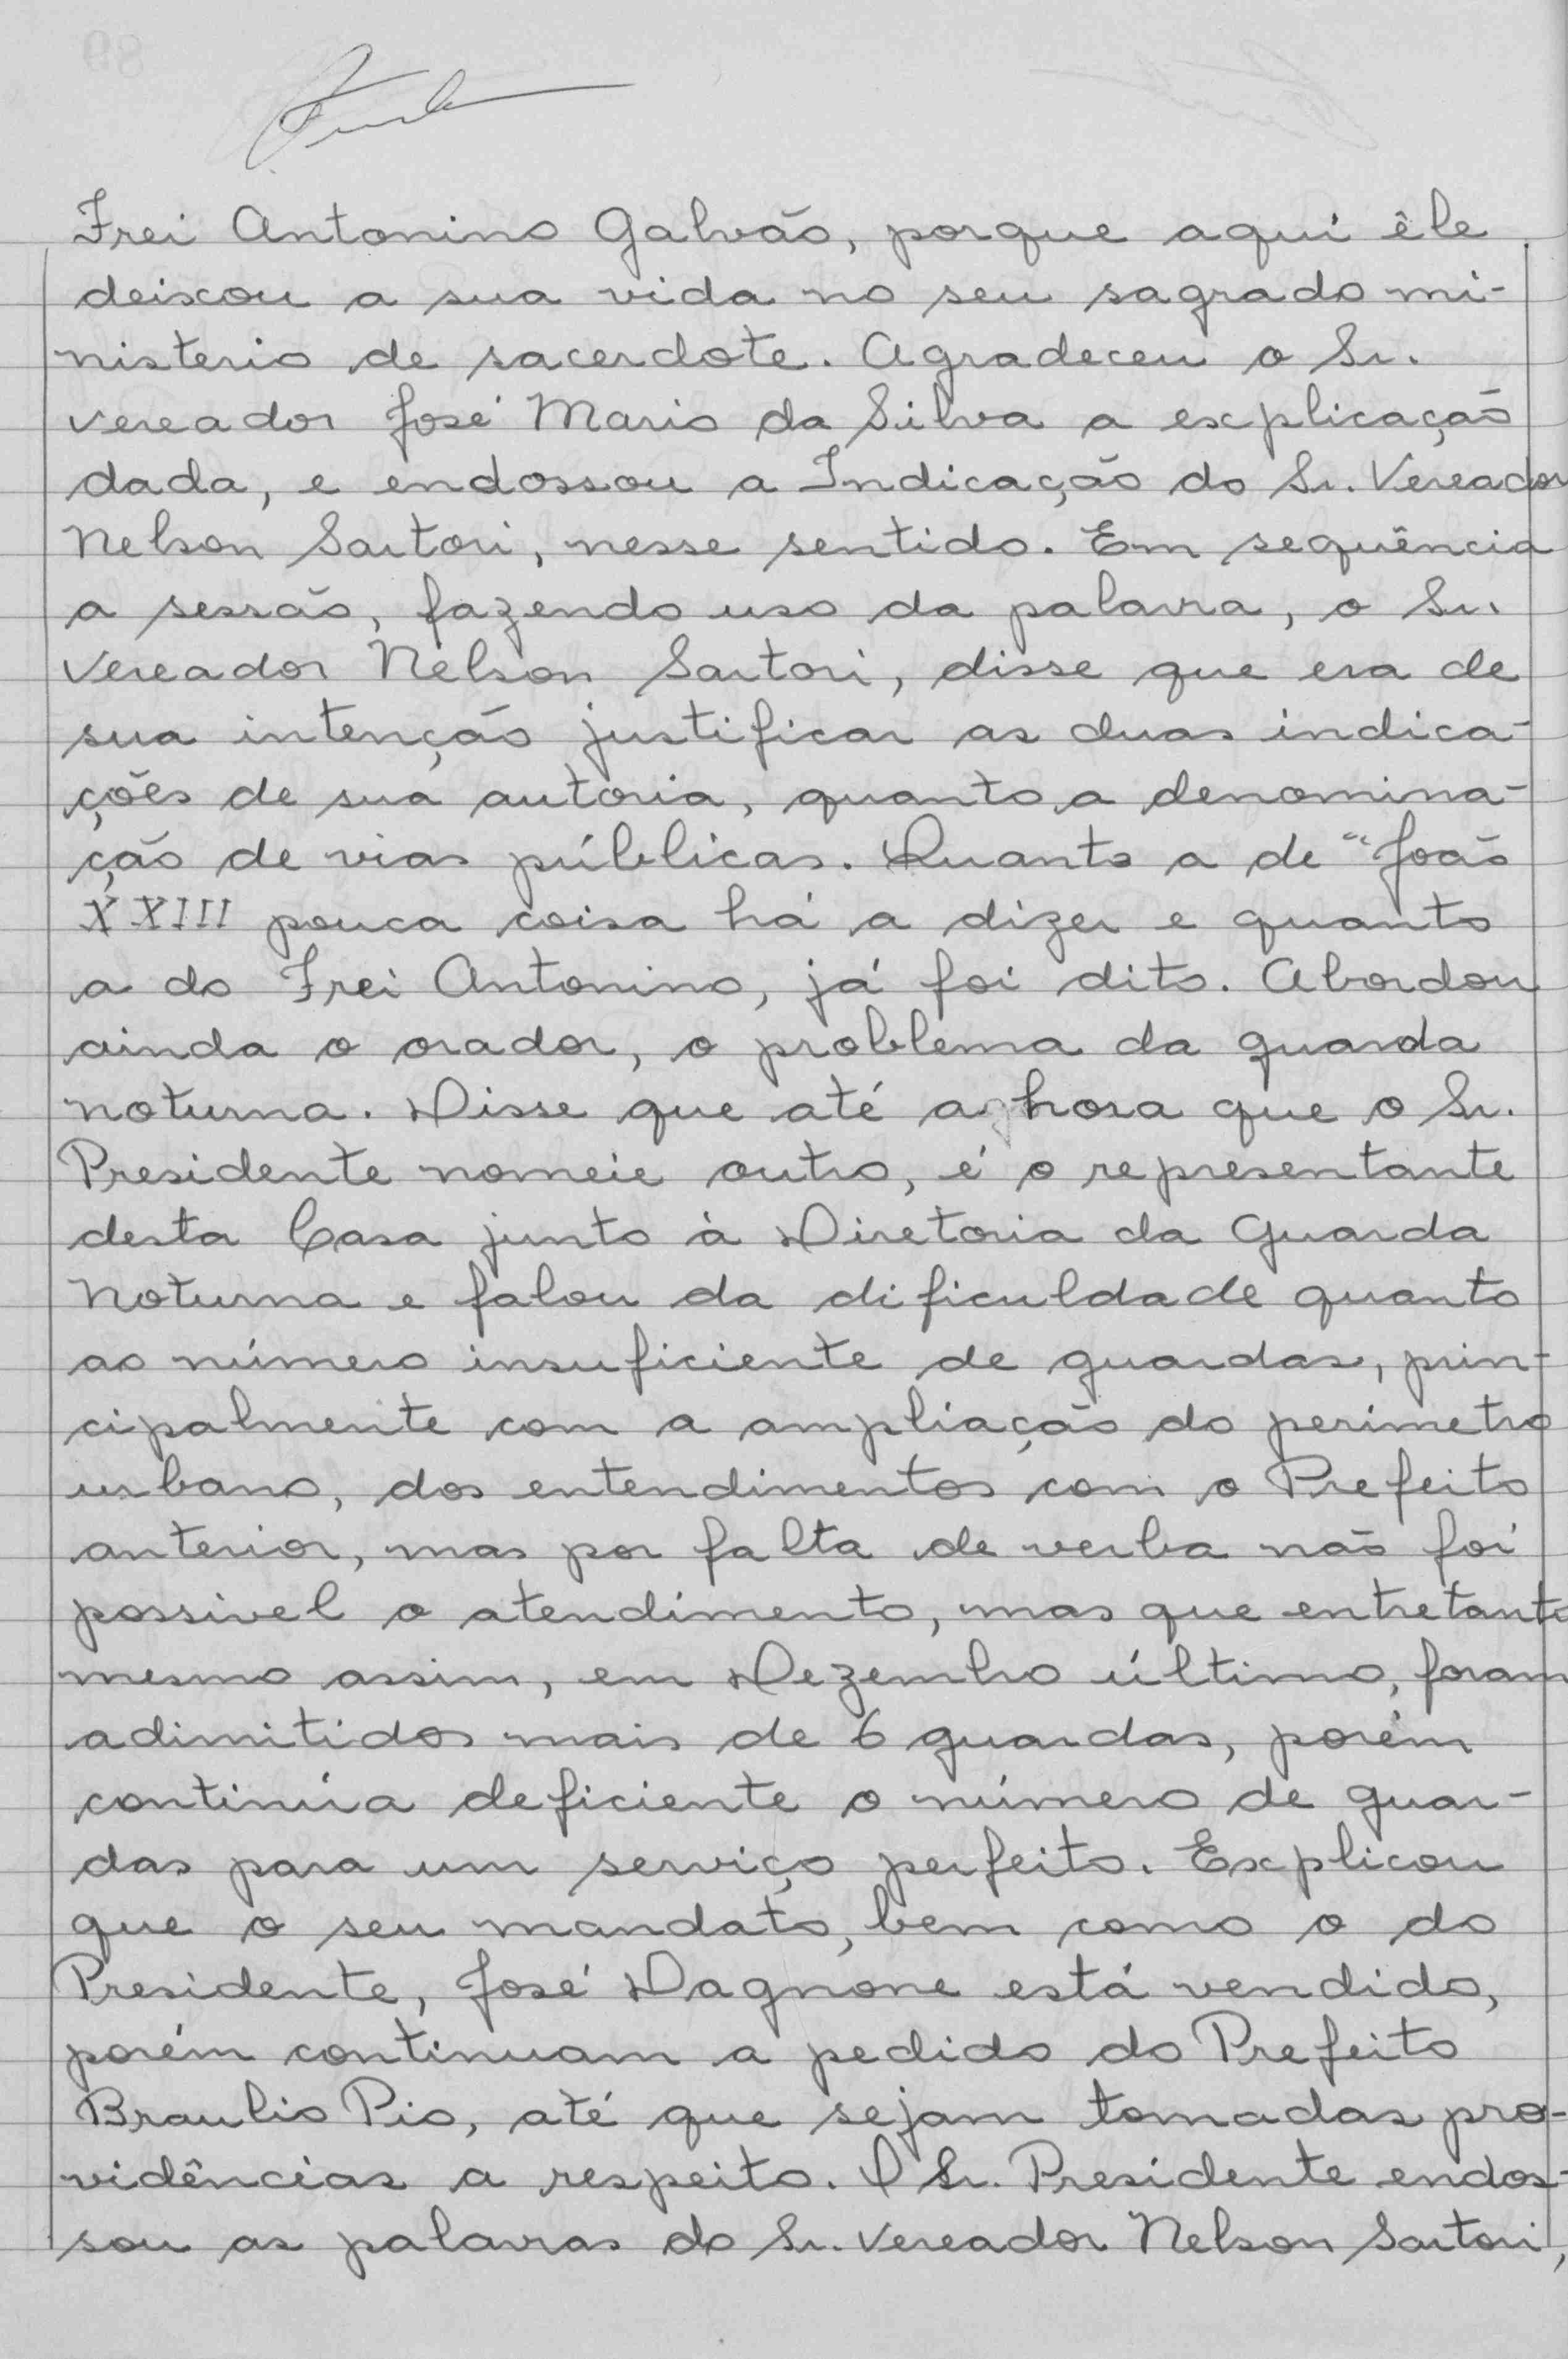 Frei Antonino Galvão, porque aqui êle
deixou a sua vida no seu sagrado mi-
nisterio de sacerdote. Agradeceu o Sr.
vereador José Mario da Silva a explicação
dada, e endossou a Indicação do Sr. Vereador
Nelson Sartori, nesse sentido. Em sequência
a sessão, fazendo uso da palavra, o Sr.
Vereador Nelson Sartori, disse que era de
sua intenção justificar as duas indica-
ções de sua autoria, quanto a denomina-
ção de vias públicas. Quanto a de "João
XXIII pouca coisa há a dizer e quanto
a do Frei Antonino, já foi dito. Abordou
ainda o orador, o problema da guarda
noturna. Disse que até a hora que o Sr.
Presidente nomeie outro, é o representante
desta Casa junto à Diretoria da Guarda
Noturna e falou da dificuldade quanto
ao número insuficiente de guardas, prin-
cipalmente com a ampliação do perímetro
urbano, dos entendimentos com o Prefeito
anterior, mas por falta de verba não foi
possivel o atendimento, mas que entretanto
mesmo assim, em Dezembro último, foram
adimitidos mais de 6 guardas, porém
continúa deficiente o número de guar-
das para um serviço perfeito. Explicou
que o seu mandato, bem como o do
Presidente, José Dagnone está vendido,
porém continuam a pedido do Prefeito
Braulio Pio, até que sejam tomadas pro-
vidências a respeito. O Sr. Presidente endos-
sou as palavras do Sr. Vereador Nelson Sartori,